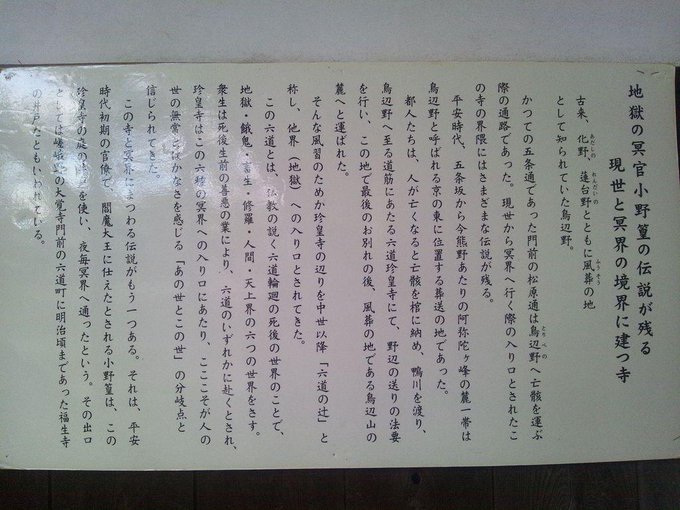 地獄の冥官小野篁の伝説が残る
現世と冥界の境界に建つ寺
古来、化野、蓮台野とともに風葬の地
として知られていた鳥辺野。
かつての五条通であった門前の松原通は鳥辺野へ亡骸を運ぶ
際の通路であった。現世から冥界へ行く際の入り口とされたこ
の寺の界隈にはさまざまな伝説が残る。
平安時代、五条坂から今熊野あたりの阿弥陀ヶ峰の麓一帯は
鳥辺野と呼ばれる京の東に位置する葬送の地であった。
都人たちは、人が亡くなると亡骸を棺に納め、鴨川を渡り、
鳥辺野へ至る道筋にあたる六道珍皇寺にて、野辺の送りの法要
を行い、この地で最後のお別れの後、風葬の地である鳥辺山の
麓へと運ばれた。
そんな風習のためか珍皇寺の辺りを中世以降「六道の辻」と
称し、他界(地獄)への入り口とされてきた。
この六道とは、仏教の説く六道輪廻の死後の世界のことで、
地獄・餓鬼・畜生・修羅・人間・天上界の六つの世界をさす。
衆生は死後生前の善悪の業により、六道のいずれかに赴くとされ、
珍皇寺はこの六道の冥界への入り口にあたり、ここそが人の
世の無常とはかなさを感じる「あの世とこの世」の分岐点と
信じられてきた。
この寺と冥界にまつわる伝説がもう一つある。それは、平安
時代初期の官僚で、閻魔大王に仕えたとされる小野篁は、この
珍皇寺の庭の井戸を使い、夜毎冥界へ通ったという。その出口
としては嵯峨の大覚寺門前の六道町に明治頃まであった福生寺
の井戸ともいわれている。
あだしの
れんだいの
ふうそう
とりべの